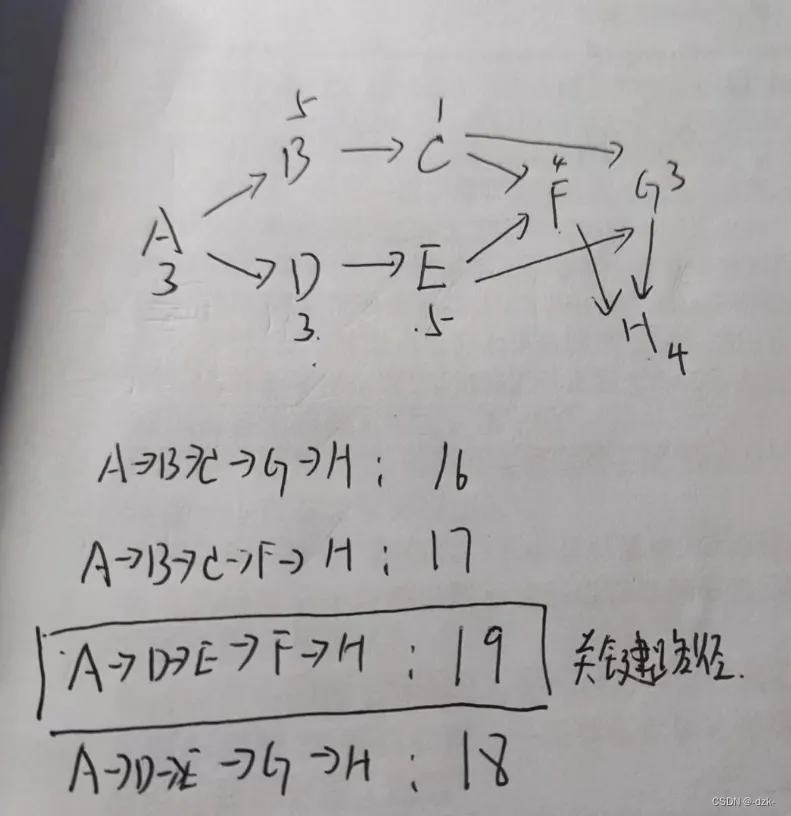 5 1
B → C
4
F G 3
A
3
D → E
3. .5
H 4
A→B→C→G→H: 16
A→B→C→F→H: 17
A→D→E→F→H: 19 关键路径.
A→D→E→G→H: 18
CSDN @-dzk-